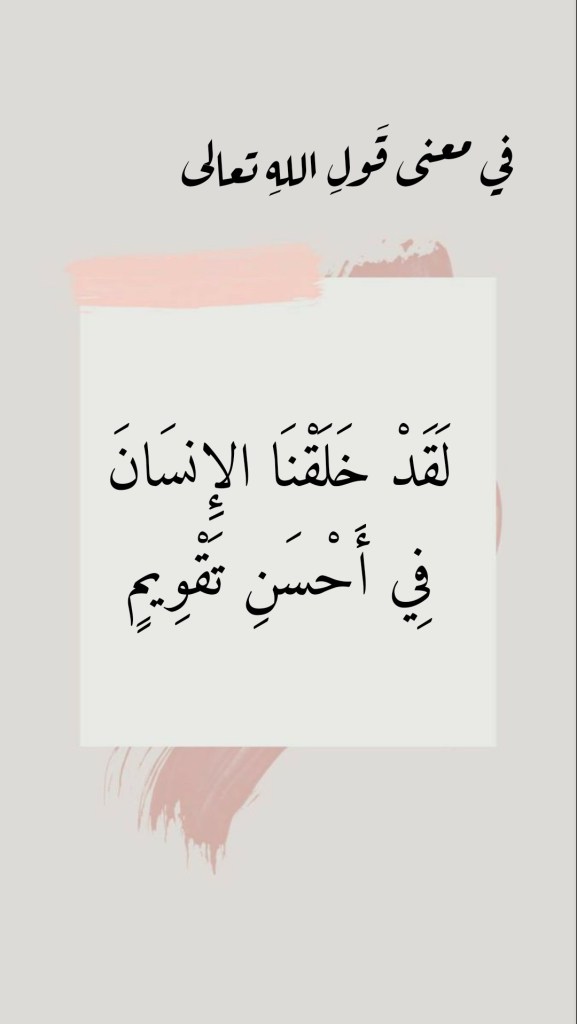 في معنى قَولِ اللهِ تعالى
لَقَدْ خَلَقْنَا الإِنسَانَ
فِي أَحْسَنِ تَقْوِيمٍ